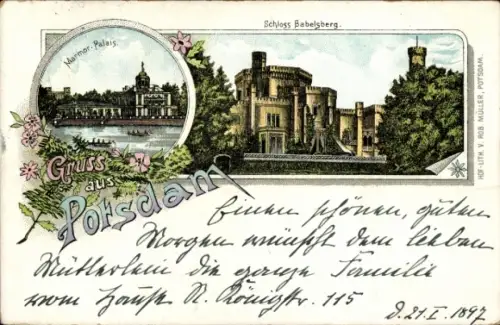 Marmor-Palais.
Schloss Babelsberg.
Gruss
aus
Potsdam
HOF-LITH. V. ROB. MÜLLER, POTSDAM.
Einen schönen, guten
Morgen wünscht dem lieben
Mütterlein die ganze Familie
vom Hause N. Königstr. 115
d. 21. I. 1897